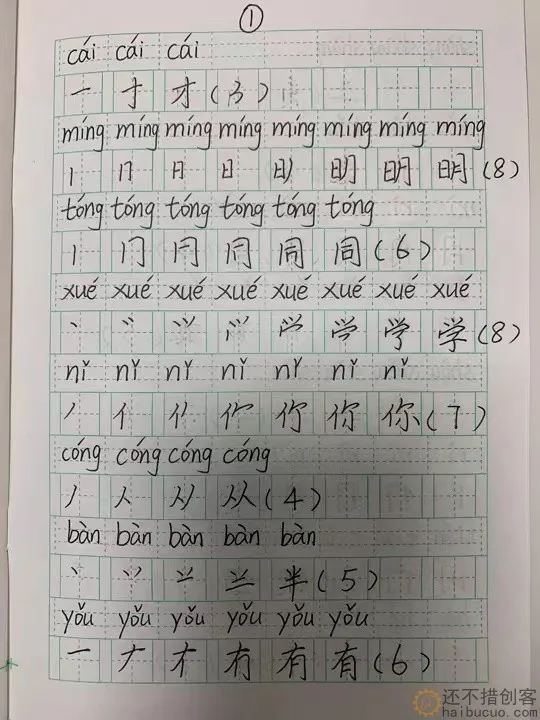 ①
cái cái cái
一 十 才(3)
míng míng míng míng míng míng míng míng
丨 冂 日 日 明 明(8)
tóng tóng tóng tóng tóng tóng
丨 冂 同(6)
xué xué xué xué xué xué xué xué
丶 学(8)
nǐ nǐ nǐ nǐ nǐ nǐ nǐ
丿 亻 你(7)
cóng cóng cóng cóng
丿 人 从(4)
bàn bàn bàn bàn bàn
丶 半(5)
yǒu yǒu yǒu yǒu yǒu yǒu
一 𠂇 有 有(6)
还不措创客
haibucuo.com